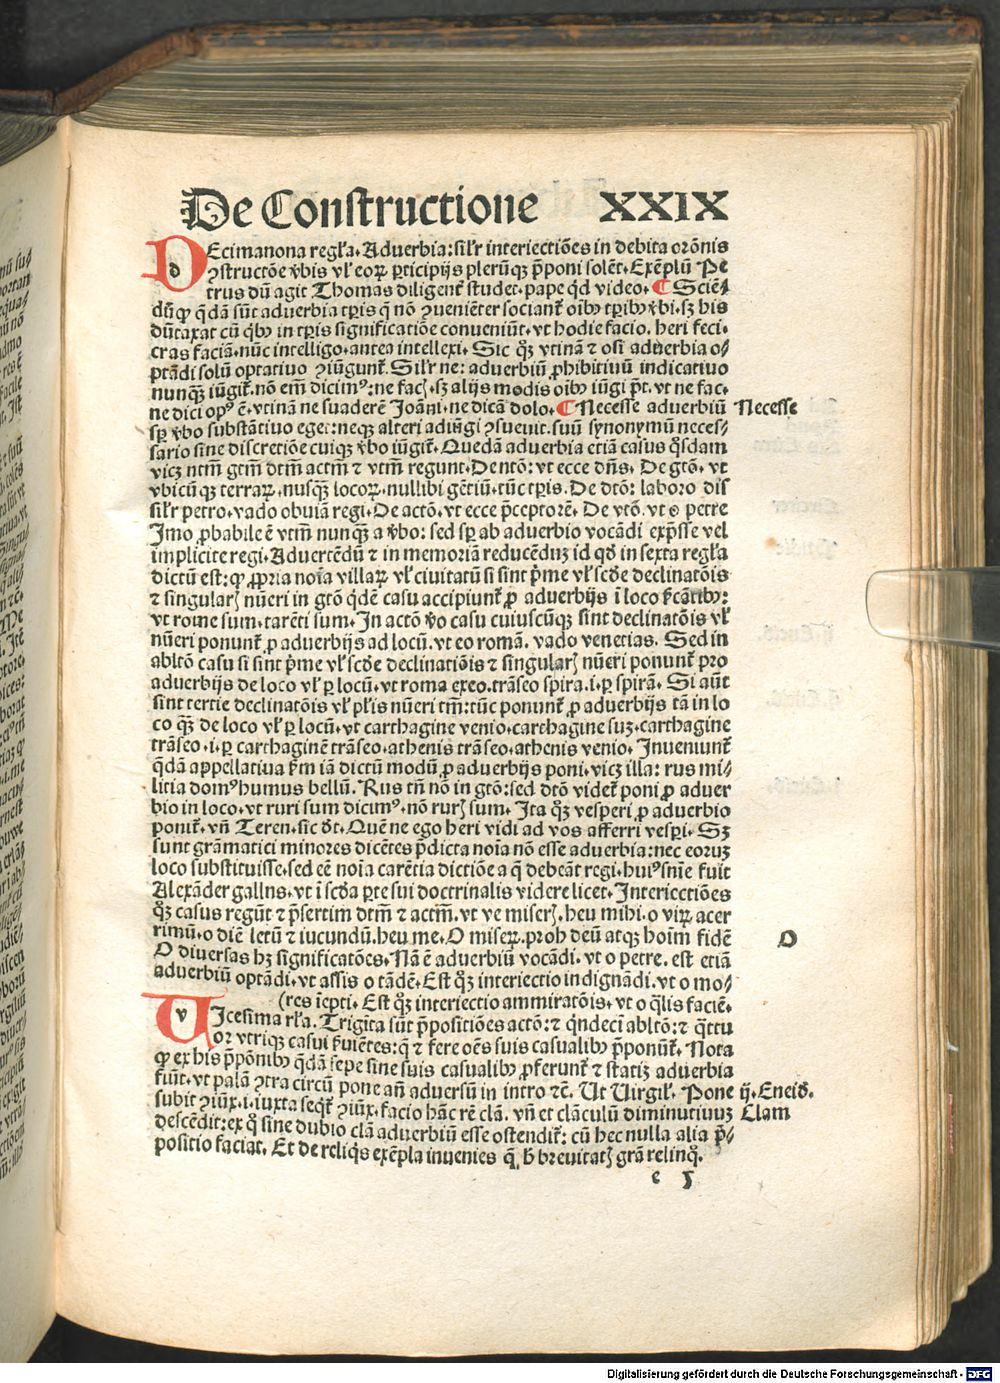 De Constructione XXIX
DEcimanona regl'a. Aduerbia: sil'r interiectiões in debita orõnis
ꝯstructõe v̄bis vl' eoꝝ p̱ticipijs plerũqꝫ p̄poni solẽt. Exẽplũ Pe
trus dũ agit Thomas diligent̃ studet. pape qd̃ video. ¶ Sciẽ/
dũ qꝫ q̃dã sũt aduerbia tp̱is q̃ nõ ꝯueniẽter sociant̃ oĩbꝰ tp̱ibꝰ v̄bi. sꝫ his
dũtaxat cũ qĩbꝰ in tp̱is significatiõe conueniũt. vt hodie facio. heri feci.
cras faciã. nũc intelligo. antea intellexi. Sic q̊ꝫ vtinã ⁊ osi aduerbia o/
ptãdi solũ optatiuo ꝯiũgunt̃. Sil'r ne: aduerbiũ ꝓhibitiuũ indicatiuo
nunqꝫ̃ iũgit̃. nõ em̃ dicimꝰ: ne facꝭ. sꝫ alijs modis oĩbꝰ iũgi põt. vt ne fac.
ne dici opꝰ ẽ. vtinã ne suaderẽ Joãni. ne dicã dolo. ¶ Necesse aduerbiũ Necesse
sp̱ v̄bo substãtiuo eget: neqꝫ alteri adiũgi ꝯsueuit. suũ synonymũ neces/
sario sine discretiõe cuiqꝫ v̄bo iũgit̃. Quedã aduerbia etiã casus q̊sdam
vicꝫ ntm̃ gtm̃ dtm̃ actm̃ ⁊ vtm̃ regunt. De ntõ: vt ecce dñs. De gtõ. vt
vbicũqꝫ terraꝝ. nusqꝫ̃ locoꝝ. nullibi gẽtiũ. tũc tp̱is. De dtõ: laboro dis
sil'r petro. vado obuiã regi. De actõ. vt ecce p̄ceptorẽ. De vtõ. vt o petre
Imo ꝓbabile ẽ vtm̃ nunqꝫ̃ a v̄bo: sed sp̱ ab aduerbio vocãdi exp̄sse vel
implicite regi. Aduertẽdũ ⁊ in memoriã reducẽduꝫ id qd̃ in sexta regl'a
dictũ est: qꝫ ꝓpria noĩa villaꝝ vl' ciuitatũ si sint p̄me vl' scd̃e declinatõis
⁊ singularꝭ nũeri in gtõ q̃dẽ casu accipiunt̃ ꝓ aduerbijs ĩ loco s̃catĩbꝰ:
vt rome sum. tarẽti sum. In actõ v̄o casu cuiuscũqꝫ sint declinatõis vl'
nũeri ponunt̃ ꝓ aduerbijs ad locũ. vt eo romã. vado venetias. Sed in
abltõ casu si sint p̄me vl' scd̃e declinatiõis ⁊ singularꝭ nũeri ponunt̃ pro
aduerbijs de loco vl' p̱ locũ. vt roma exeo. trãseo spira. i. p̱ spirã. Si aũt
sint tertie declinatõis vl' pl'is nũeri tm̃: tũc ponunt̃ ꝓ aduerbijs tã in lo
co qꝫ̃ de loco vl' p̱ locũ. vt carthagine venio. carthagine suꝫ. carthagine
trãseo. i. p̱ carthaginẽ trãseo. athenis trãseo. athenis venio. Inueniunt̃
q̃dã appellatiua s̃m iã dictũ modũ ꝓ aduerbijs poni. vicꝫ illa: rus mi/
litia domꝰ humus bellũ. Rus tñ nõ in gtõ: sed dtõ videt̃ poni ꝓ aduer
bio in loco. vt ruri sum dicimꝰ. nõ rurꝭ sum. Ita q̊ꝫ vesperi ꝓ aduerbio
ponit̃. vñ Teren. sic d̃t. Quẽ ne ego heri vidi ad vos afferri vesp̱i. Sꝫ
sunt grãmatici minores dicẽtes p̄dicta noĩa nõ esse aduerbia: nec eoruꝫ
loco substituisse. sed eẽ noĩa carẽtia dictiõe a q̃ debeãt regi. huiꝰ snĩe fuit
Alexãder gallus. vt ĩ scd̃a p̱te sui doctrinalis videre licet. Interiectiões
q̊ꝫ casus regũt ⁊ p̄sertim dtm̃ ⁊ actm̃. vt ve miserꝭ. heu mihi. o viꝝ acer
rimũ. o diẽ letũ ⁊ iucundũ. heu me. O miseꝝ. proh deũ atqꝫ hoĩm fidẽ
O diuersas hꝫ significatões. Nã ẽ aduerbiũ vocãdi. vt o petre. est etiã O
aduerbiũ optãdi. vt assis o tãdẽ. Est q̊ꝫ interiectio indignãdi. vt o mo/
(res ĩepti. Est q̊ꝫ interiectio ammiratõis. vt o q̃lis faciẽ.
VIcesima rl'a. Trigĩta sũt p̄positiões actõ: ⁊ qĩndecĩ abltõ: ⁊ q̃ttu
or vtriqꝫ casui s̃uiẽtes: q̃ ⁊ fere oẽs suis casualibꝰ p̄ponũt̃. Nota
qꝫ ex his p̄põnibꝰ q̃dã sepe sine suis casualibꝰ ꝓferunt̃ ⁊ statĩ aduerbia
fiũt. vt palã ꝯtra circũ pone añ aduersũ in intro ⁊c̃. Ut Uirgil'. Pone ij. Eneid̃.
subit ꝯiũx. i. iuxta seqt̃ ꝯiũx. facio hãc rẽ clã. vñ et clãculũ diminutiuuꝫ Clam
descẽdit: ex q̊ sine dubio clã aduerbiũ esse ostendit̃: cũ hec nulla alia p̄/
positio faciat. Et de reliq̃s exẽpla inuenies q̃ h̃ breuitatꝭ grã relinq̊.
e 5
Digitalisierung gefördert durch die Deutsche Forschungsgemeinschaft - DFG